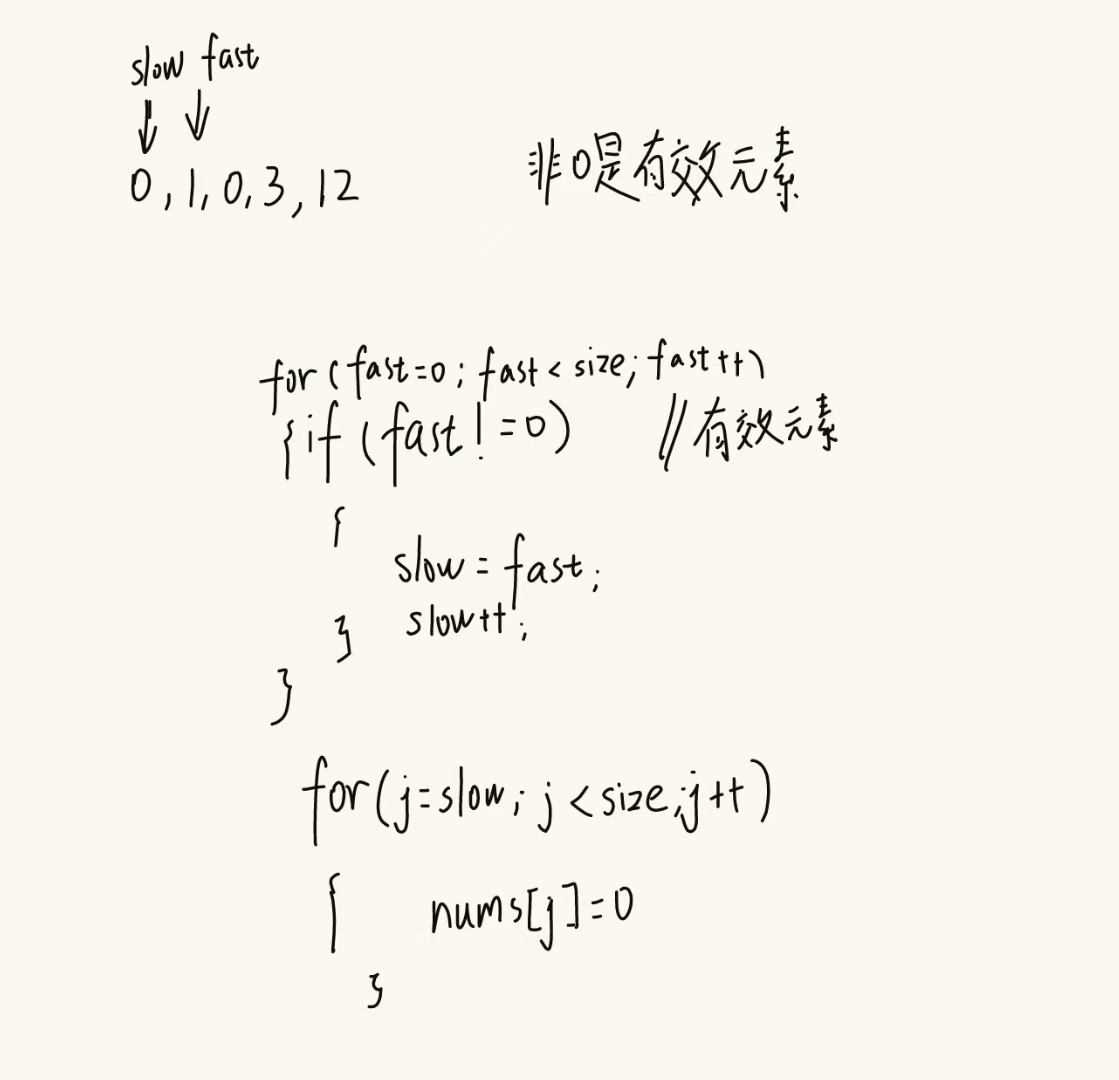 slow fast
0, 1, 0, 3, 12
非0是有效元素
for (fast=0; fast < size; fast++)
{if (fast!=0) //有效元素
{
slow = fast;
slow++;
}
}
for(j=slow; j<size;j++)
{ nums[j]=0
}